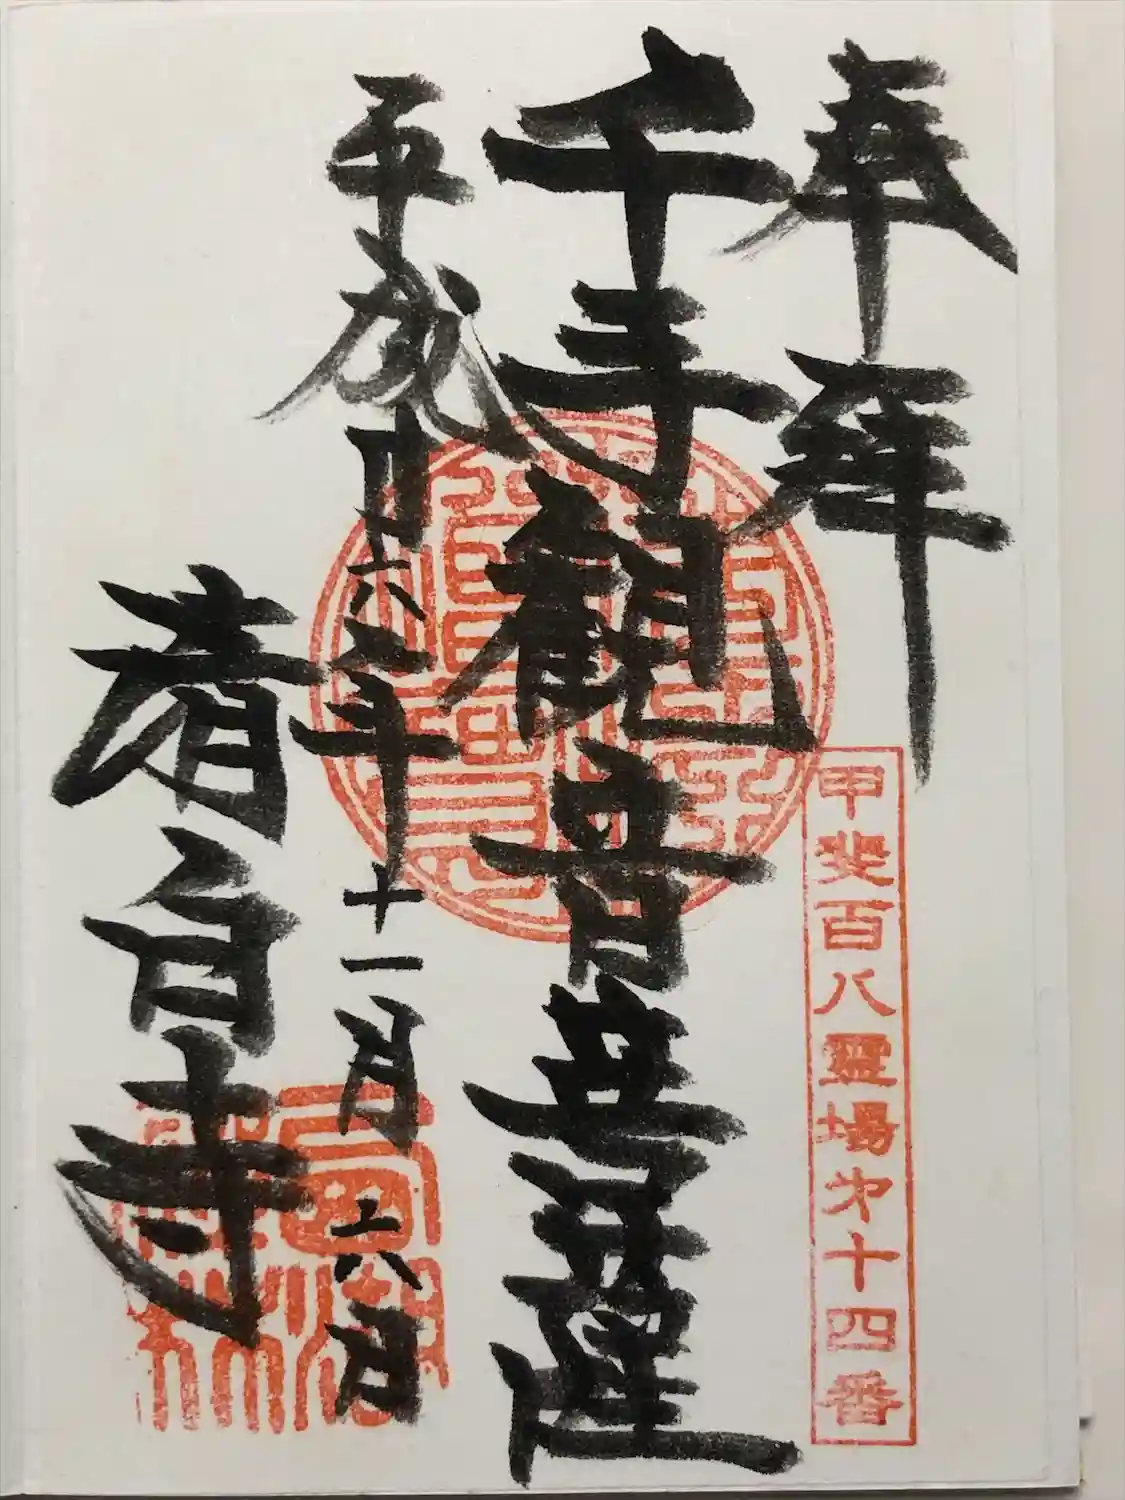 奉拝
甲斐百八靈場㐧十四番
千手観音菩薩
平成廿六年十一月十六日
清白寺